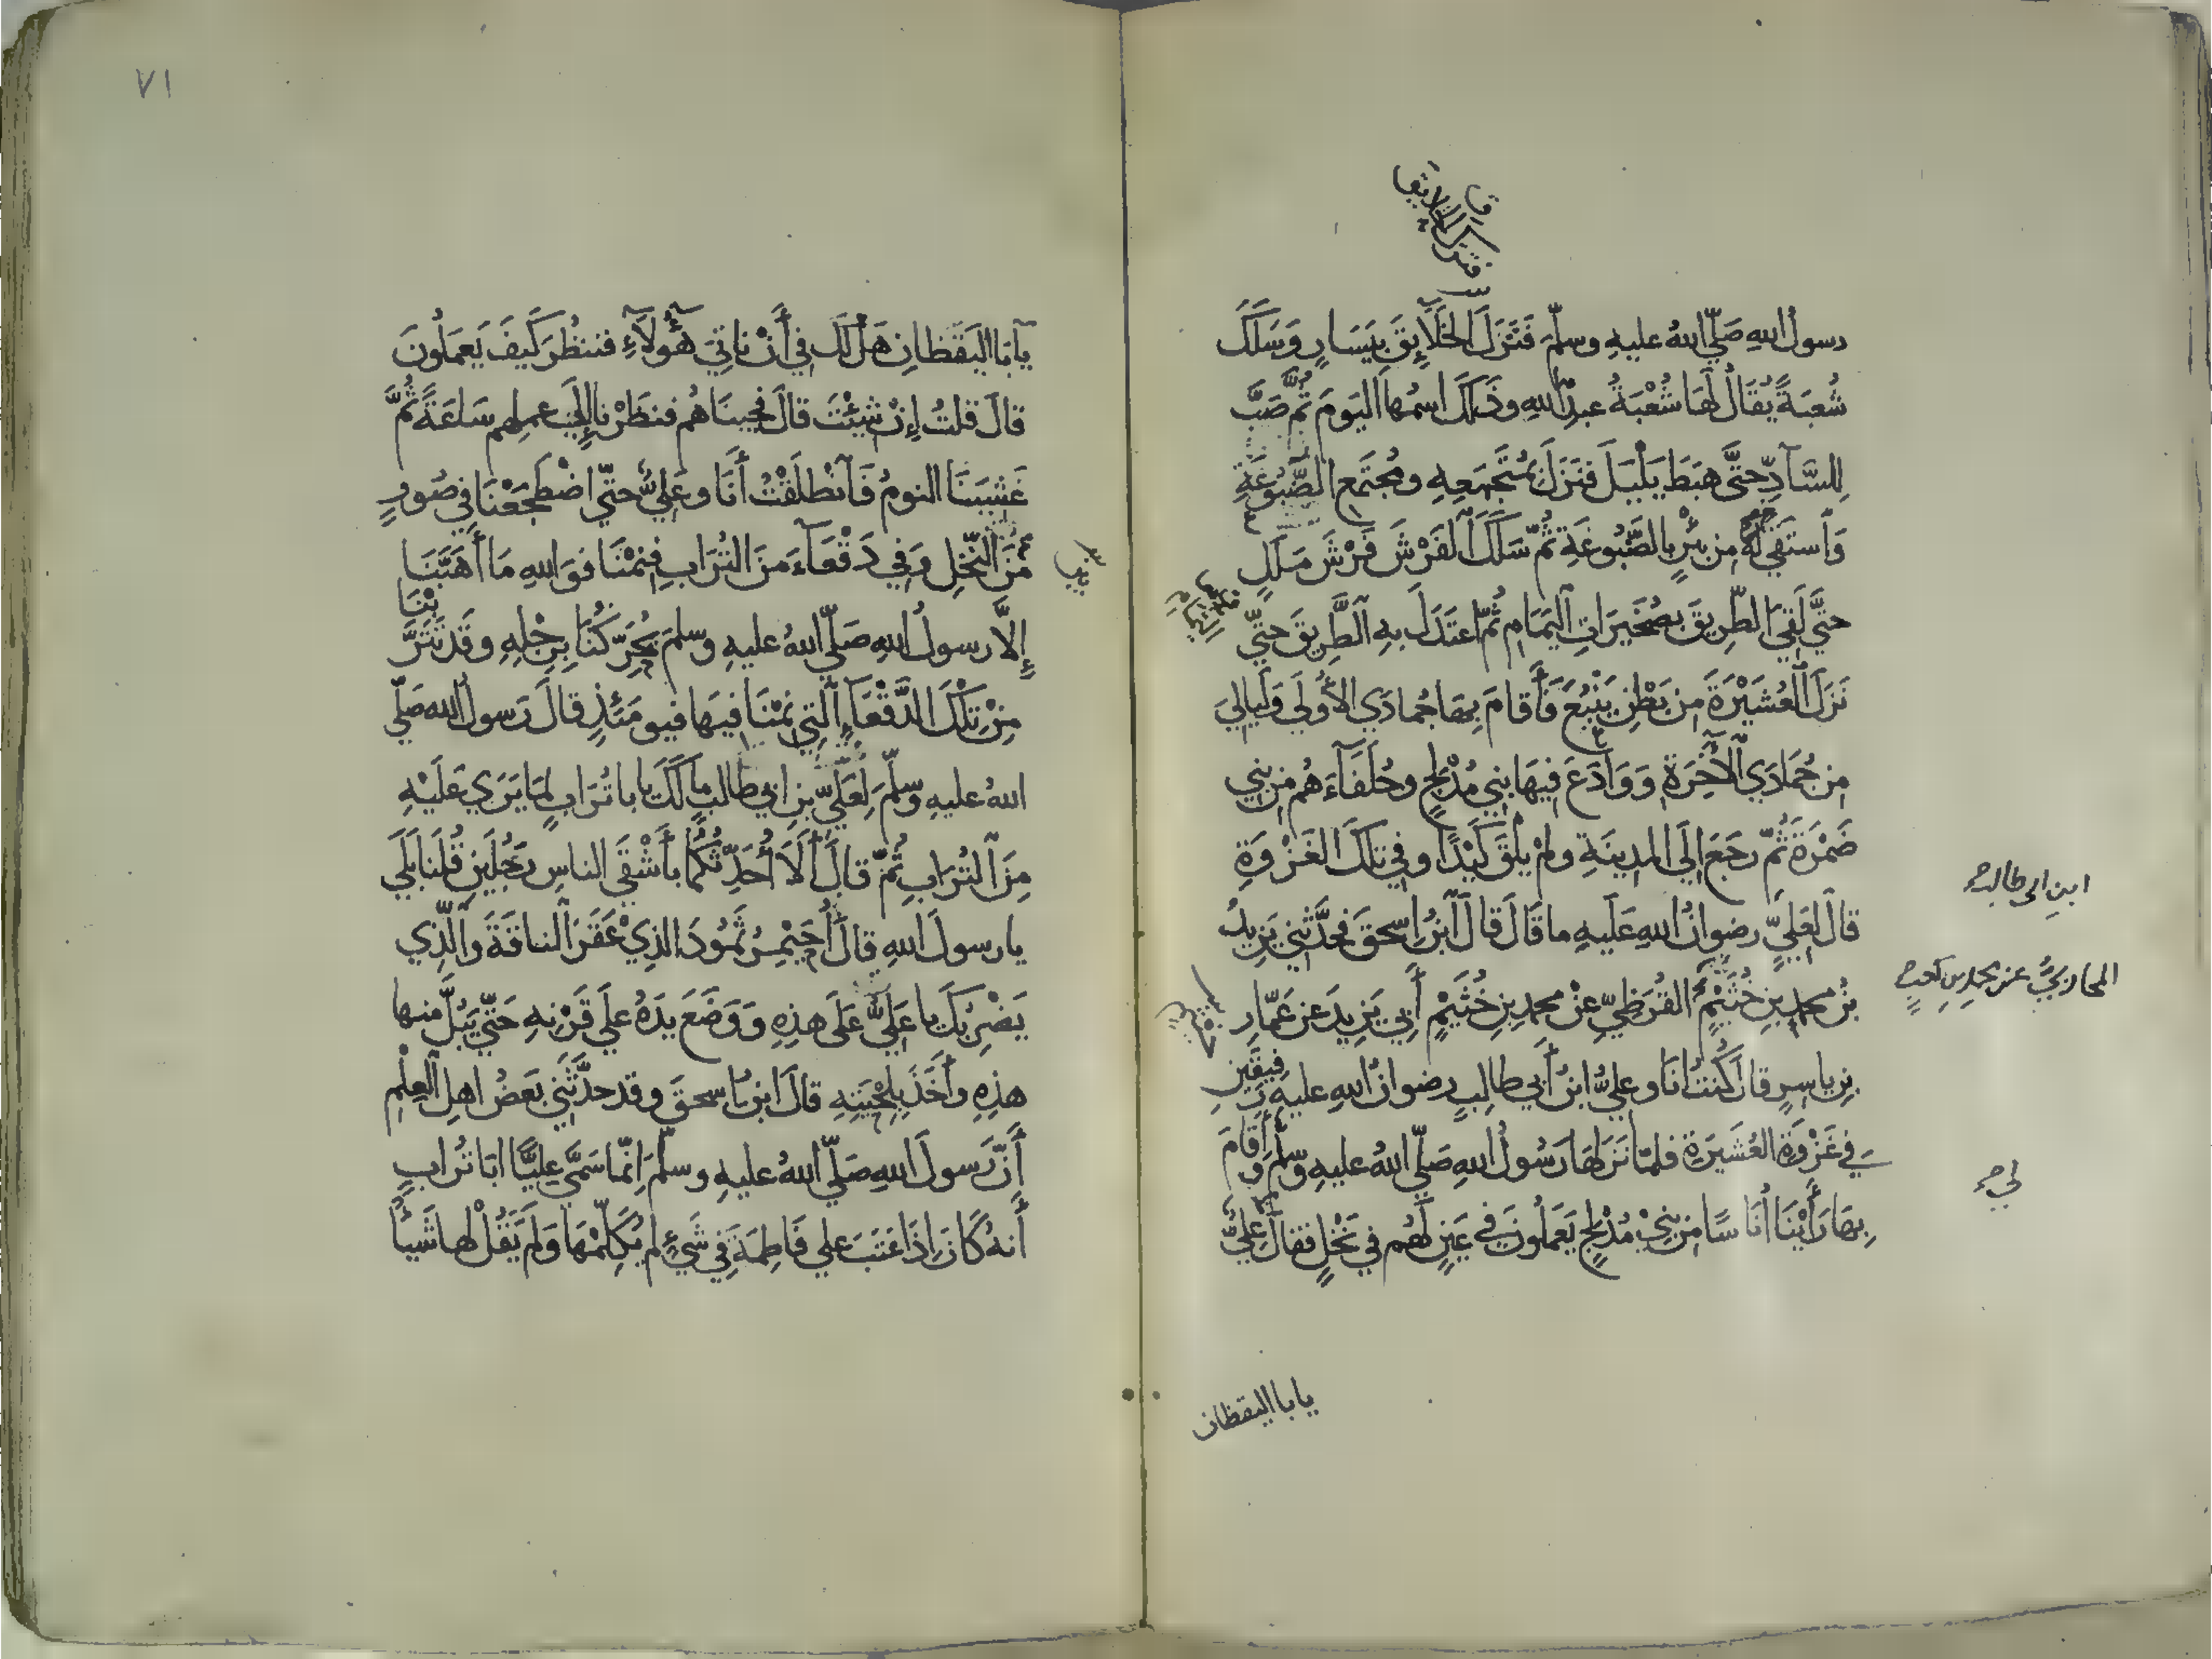 رسولُ اللهِ صَلّي اللهُ عليهِ وسلّم فَنَزَلَ الخَلَآئِقَ بِيَسَارٍ وَسَلَكَ
شُعبَةً يُقَالُ لَهَا شُعْبَةُ عبدِ اللهِ وذَلكَ اسمُها اليَومَ ثُمَّ صَبَّ
لِلسّآدِ حتَّى هَبَطَ يَلْيَلَ فنَزَلَ بمُجْتَمِعِهِ ومُجتَمَعِ الضَّبُوعَةِ
وَاستَقي لَهُ مِن بِئْرٍ بالضَّبُوعَةِ ثُمّ سَلَكَ الفَرْشَ فَرْشَ مَلَلٍ
حتَّي لَقِيَ الطّرِيقَ بصُخَيرَاتِ اليَمَامِ ثُمّ اعتَدَلَ بهِ الطَّرِيقَ حتّي
نَزَلَ العُشَيْرَةَ مِن بَطْنِ يَنْبُعَ فَأَقامَ بِهَا جُمادَي الأُولَي وَلَيالِيَ
مِن جُمَادَي الآخِرَةِ وَوَادَعَ فِيهَا بني مُدْلِجٍ وحُلَفَآءَهُم مِن بني
ضَمْرَةَ ثُمّ رجَعَ إلَي المدِينَةِ ولمْ يَلْقَ كَيْدًا وفي تلكَ الغَزْوَةِ
قالَ لعَلِيٍّ رضوانُ اللهِ عَلَيهِ ما قَالَ قالَ ابنُ إسحقَ فحَدَّثَني يَزِيدُ
بْنُ محمدِ بنِ خُثَيْمٍ القُرَظِيِّ عنْ محمدِ بنِ خُثَيمٍ أَبي يَزِيدَ عن عَمّارِ
بنِ ياسِرٍ قالَ كُنتُ أنَا وعليُّ ابنُ أَبي طالِبٍ رضوانُ اللهِ عليهِ رَفِيقَينِ
في غَزْوَةِ العُشَيرَةِ فلمّا نَزَلَهَا رَسُولُ اللهِ صَلّي اللهُ عليهِ وسلّم وَأَقَامَ
بِهَا رَأَيْنَا أُنَاسًا مِن بنيْ مُدْلِجٍ يَعمَلُونَ في عَينٍ لَهُم في نَخْلٍ فقالَ عليٌّ
ابنِ ابي طالب
المحاربيُّ عن محمدِ بنِ كعبٍ
لي
يابا اليقظان
٧١
يآبَا اليَقْظانِ هَلْ لَكَ في أَنْ نَاتِيَ هَؤُلآَءِ فننظُرَ كَيفَ يَعمَلُونَ
قالَ قلتُ إنْ شِئْتَ قالَ فجِينَاهُم فنظَرْنا إلَي عملِهِم سَاعَةً ثُمَّ
غَشِيَنَا النومُ فَانْطَلَقْتُ أَنَا وعليٌّ حتّي اضْطَجَعْنَا في صُورٍ
مِنَ النَّخلِ وَفي دَقْعَآءَ مِنَ التُرَابِ فنِمْنَا فوَاللهِ مَا أَهَبَّنَا
إلَّا رسولُ اللهِ صَلّي اللهُ عليهِ وسلمَ يُحَرّكُنَا بِرِجْلِهِ وقَد تَتَرَّبْنَا
مِنْ تِلْكَ الدَّقْعَآءِ الّتِي نِمْنَا فيهَا فيومَئِذٍ قالَ رَسولُ اللهِ صَلّي
اللهُ عليهِ وسلّم لِعَلِيِّ بنِ ابي طالبٍ مَا لَكَ يا با تُرَابٍ لِمَا يَرَي عَلَيْهِ
مِنَ التُرَابِ ثُمّ قالَ أَلَا أُحَدِّثُكُمَا بأَشْقَي الناسِ رَجُلَينِ قُلنا بَلَي
يا رسولَ اللهِ قالَ أُحَيْمِرُ ثَمُودَ الذِي عَقَرَ الناقَةَ والَّذِي
يَضْرِبُكَ يا عَلِيُّ عَلَى هذِهِ وَوَضَعَ يدَهُ علَي قَرْنِهِ حَتّي يَبُلَّ مِنها
هذِهِ وأَخَذَ بِلِحْيَتِهِ قالَ ابنُ اسحقَ وقد حدَّثَني بَعضُ اهلِ العِلْمِ
أَنَّ رسولَ اللهِ صَلّي اللهُ عليهِ وسلّم اِنّما سَمَّي عليًّا ابَا تُرابٍ
أَنهُ كَانَ إذَا عَتَبَ علي فَاطِمَةَ في شَيْءٍ لم يُكَلِّمْهَا وَلَم يَقُلْ لها شَيْأً